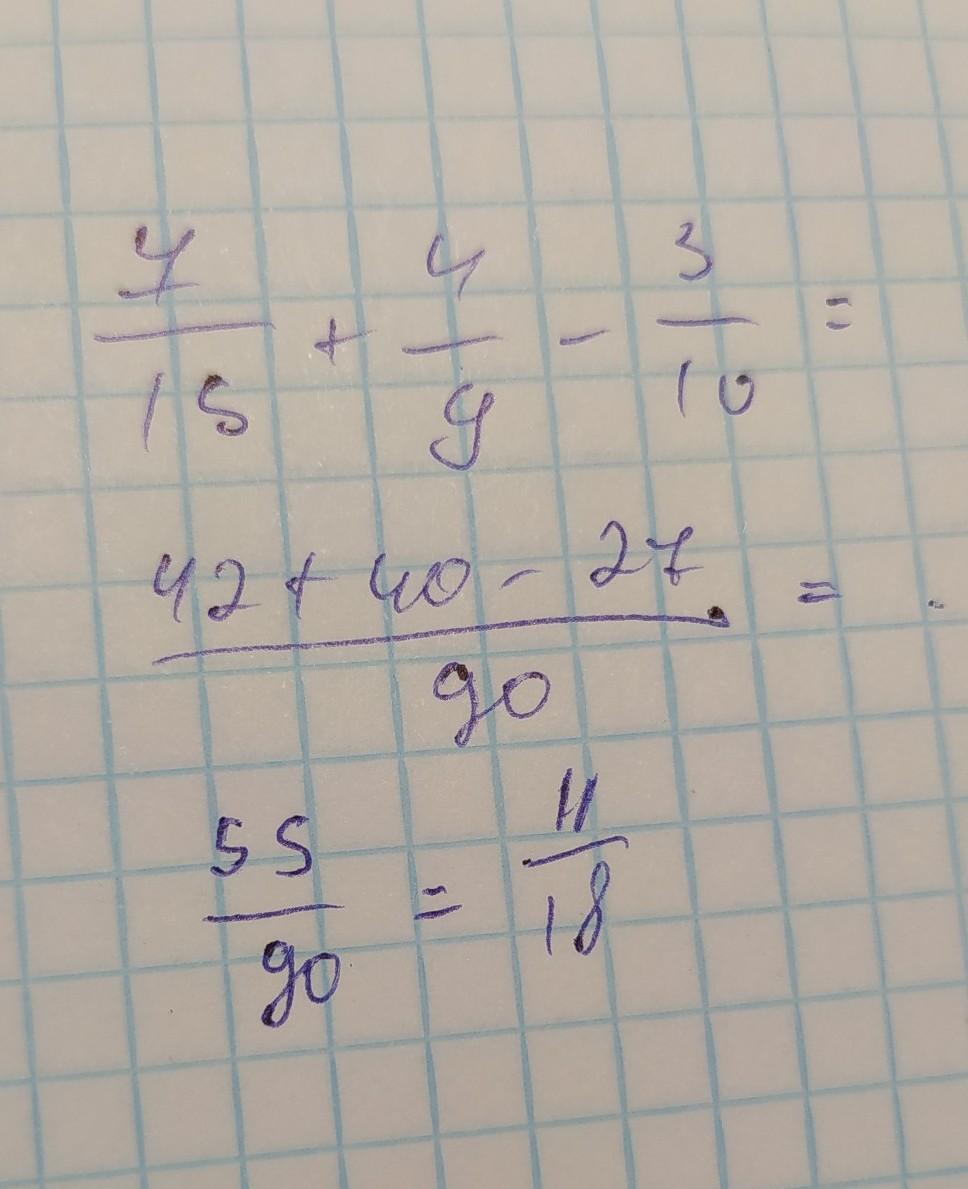 7/15 + 4/9 - 3/10 =
42 + 40 - 27 / 90 =
55/90 = 11/18